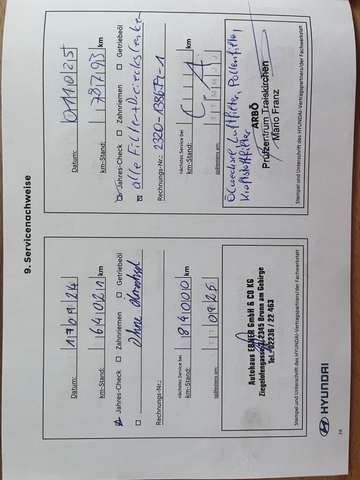 9. Servicenachweise
Datum: 17 09 24
km-Stand: 64021 km
Jahres-Check Zahnriemen Getriebeöl
Ohne Ölwechsel
Rechnungs-Nr.:
nächstes Service bei 84000 km
spätestens am: 09 25
Autohaus EBNER GmbH & CO KG
Ziegelofengasse 2345 Brunn am Gebirge
Tel. 02236 / 22 463
Stempel und Unterschrift des HYUNDAI-Vertragspartners/der Fachwerkstatt
Datum: 01 10 25
km-Stand: 78793 km
Jahres-Check Zahnriemen Getriebeöl
alle Filter
Rechnungs-Nr.:
nächstes Service bei km
spätestens am:
Ölwechsel, Luftfilter, Pollenfilter,
Kraftstofffilter
ARBÖ
Prüfzentrum Traiskirchen
Mario Franz
Stempel und Unterschrift des HYUNDAI-Vertragspartners/der Fachwerkstatt
HYUNDAI